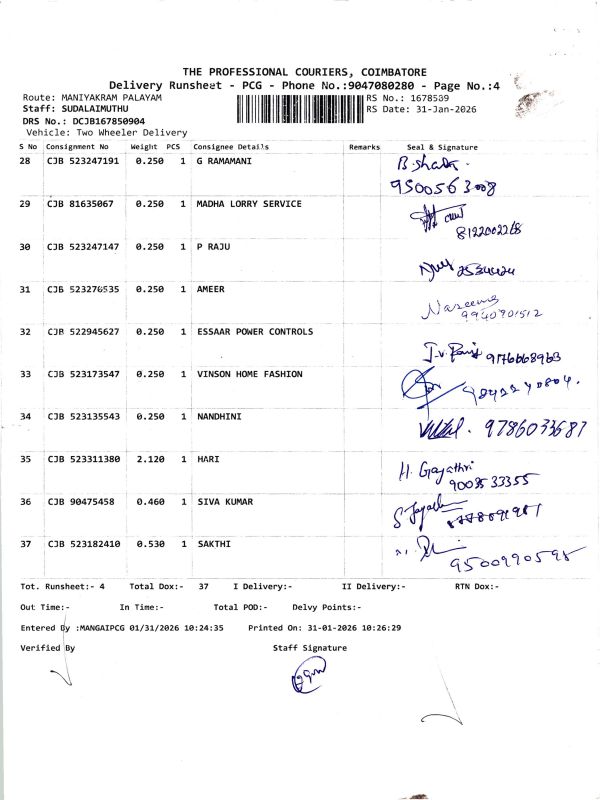 THE PROFESSIONAL COURIERS, COIMBATORE
Delivery Runsheet - PCG - Phone No.:9047080280 - Page No.:4
Route: MANIYAKRAM PALAYAM
RS No.: 1678509
Staff: SUDALAIMUTHU
RS Date: 31-Jan-2026
DRS No.: DCJB167850904
Vehicle: Two Wheeler Delivery
S No Consignment No Weight PCS Consignee Details Remarks Seal & Signature
28 CJB 523247191 0.250 1 G RAMAMANI
29 CJB 81635067 0.250 1 MADHA LORRY SERVICE
8122002268
30 CJB 523247147 0.250 1 P RAJU
31 CJB 523276535 0.250 1 AMEER Naseema
9940901512
32 CJB 522945627 0.250 1 ESSAAR POWER CONTROLS
9176668963
33 CJB 523173547 0.250 1 VINSON HOME FASHION
34 CJB 523135543 0.250 1 NANDHINI
9786033687
35 CJB 523311380 2.120 1 HARI H. Gayathri
36 CJB 90475458 0.460 1 SIVA KUMAR
37 CJB 523182410 0.530 1 SAKTHI
9500990595
Tot. Runsheet:- 4 Total Dox:- 37 I Delivery:- II Delivery:- RTN Dox:-
Out Time:- In Time:- Total POD:- Delvy Points:-
Entered By :MANGAIPCG 01/31/2026 10:24:35 Printed On: 31-01-2026 10:26:29
Verified By Staff Signature